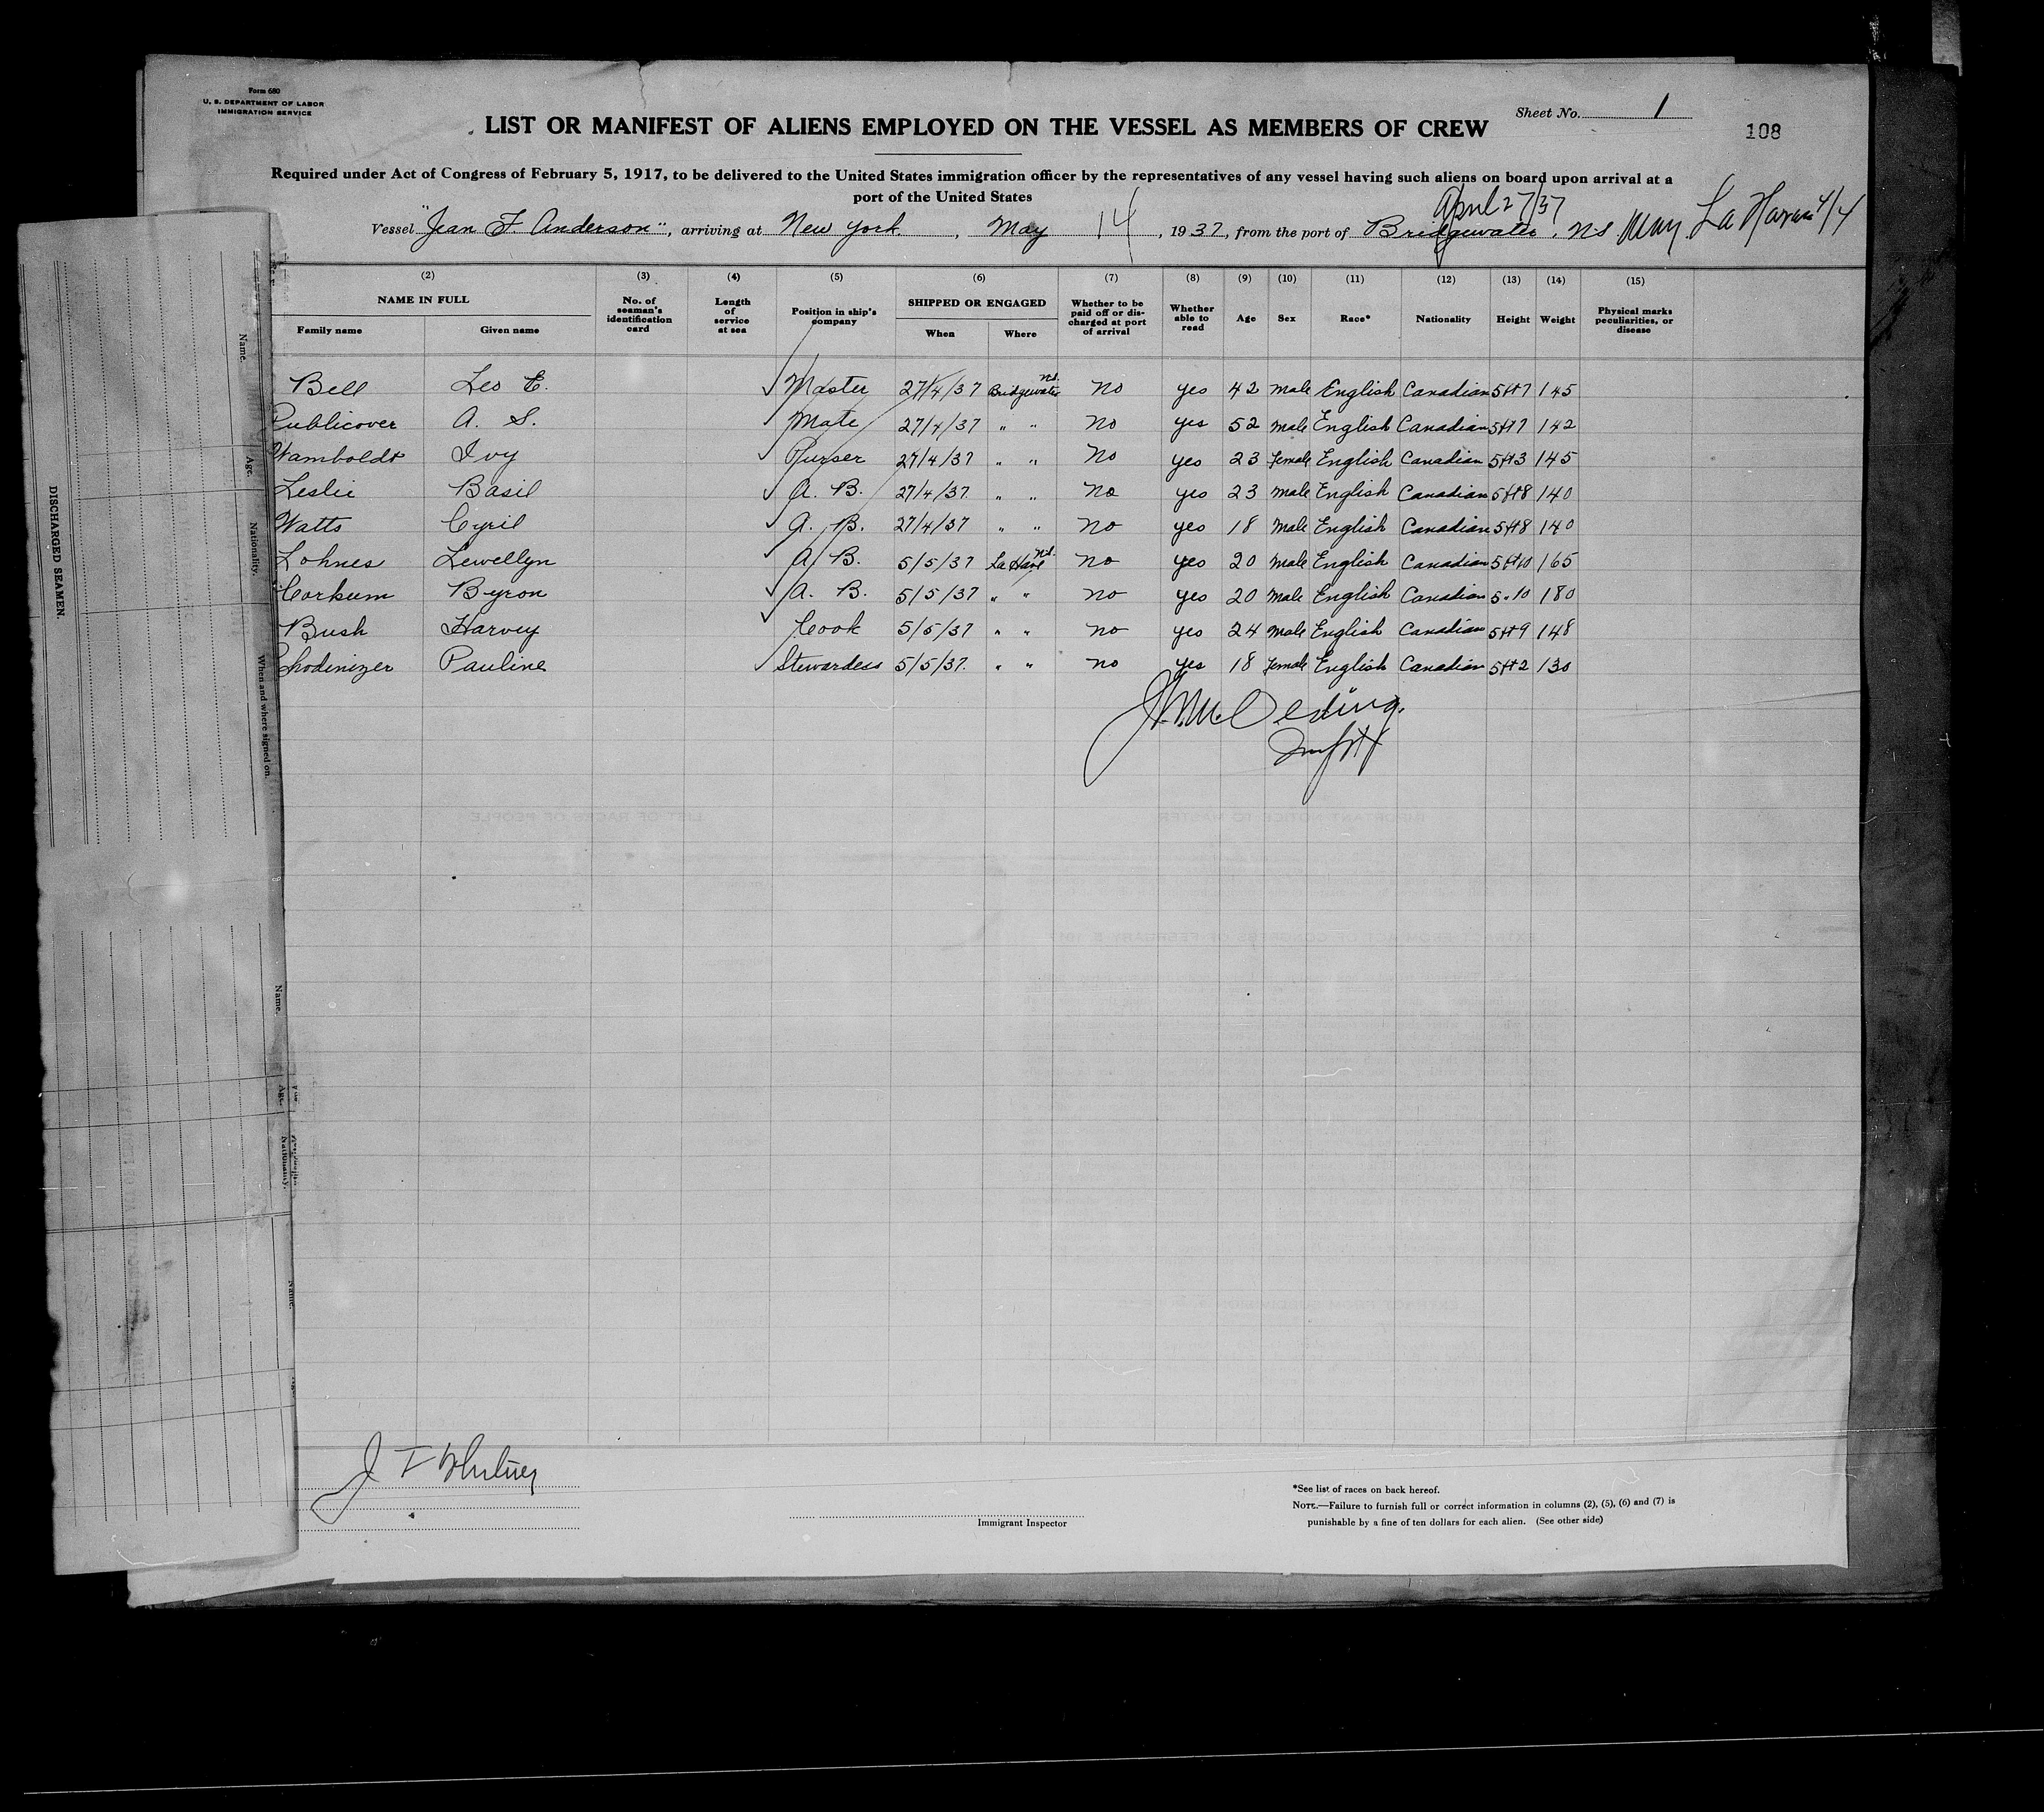 Form 680
U. S. DEPARTMENT OF LABOR
IMMIGRATION SERVICE
Sheet No. 1
108
LIST OR MANIFEST OF ALIENS EMPLOYED ON THE VESSEL AS MEMBERS OF CREW
Required under Act of Congress of February 5, 1917, to be delivered to the United States immigration officer by the representatives of any vessel having such aliens on board upon arrival at a
port of the United States
April 27/37
Vessel "Jean F. Anderson", arriving at New York, May 14, 1937, from the port of Bridgewater, NS May La Havre 4/4
(2) (3) (4) (5) (6) (7) (8) (9) (10) (11) (12) (13) (14) (15)
NAME IN FULL No. of seaman's identification card Length of service at sea Position in ship's company SHIPPED OR ENGAGED Whether to be paid off or discharged at port of arrival Whether able to read Age Sex Race* Nationality Height Weight Physical marks peculiarities, or disease
Family name Given name When Where
Bell Leo E. Master 27/4/37 Bridgewater NS. No yes 42 Male English Canadian 5ft7 145
Publicover A. S. Mate 27/4/37 " " No yes 52 Male English Canadian 5ft7 142
Wamboldt Ivy Purser 27/4/37 " " No yes 23 Female English Canadian 5ft3 145
Leslie Basil A. B. 27/4/37 " " No yes 23 Male English Canadian 5ft8 140
Watts Cyril A. B. 27/4/37 " " No yes 18 Male English Canadian 5ft8 140
Lohnes Lewellyn A B. 5/5/37 La Have NS. No yes 20 Male English Canadian 5ft10 165
Corkum Byron A. B. 5/5/37 " " No yes 20 Male English Canadian 5"10 180
Bush Harvey Cook 5/5/37 " " no yes 24 Male English Canadian 5ft9 148
Pauline Stewardess 5/5/37 " " no yes 18 Female English Canadian 5ft2 130
DISCHARGED SEAMEN.
Name.
Age.
Nationality.
When and where signed on.
Name.
Age.
Nationality.
Name.
*See list of races on back hereof.
NOTE.—Failure to furnish full or correct information in columns (2), (5), (6) and (7) is
punishable by a fine of ten dollars for each alien. (See other side)
Immigrant Inspector